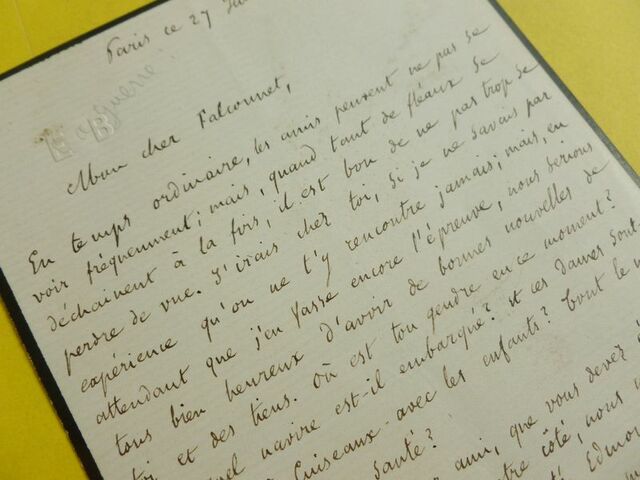 Paris ce 27
la guerre
E B
Mon cher Falconnet,
En temps ordinaire, les amis peuvent ne pas se
voir fréquemment; mais, quand tant de fléaux se
déchainent à la fois, il est bon de ne pas trop se
perdre de vue. J'irais chez toi, si je ne savais par
expérience qu'on ne t'y rencontre jamais; mais, en
attendant que j'en fasse encore l'épreuve, nous serions
tous bien heureux d'avoir de bonnes nouvelles de
toi et des tiens. Où est ton gendre en ce moment?
quel navire est-il embarqué? et ces dames sont
Cuiseaux avec les enfants? tout le
santé?
ami, que vous devez
autre côté, nous
Edmo